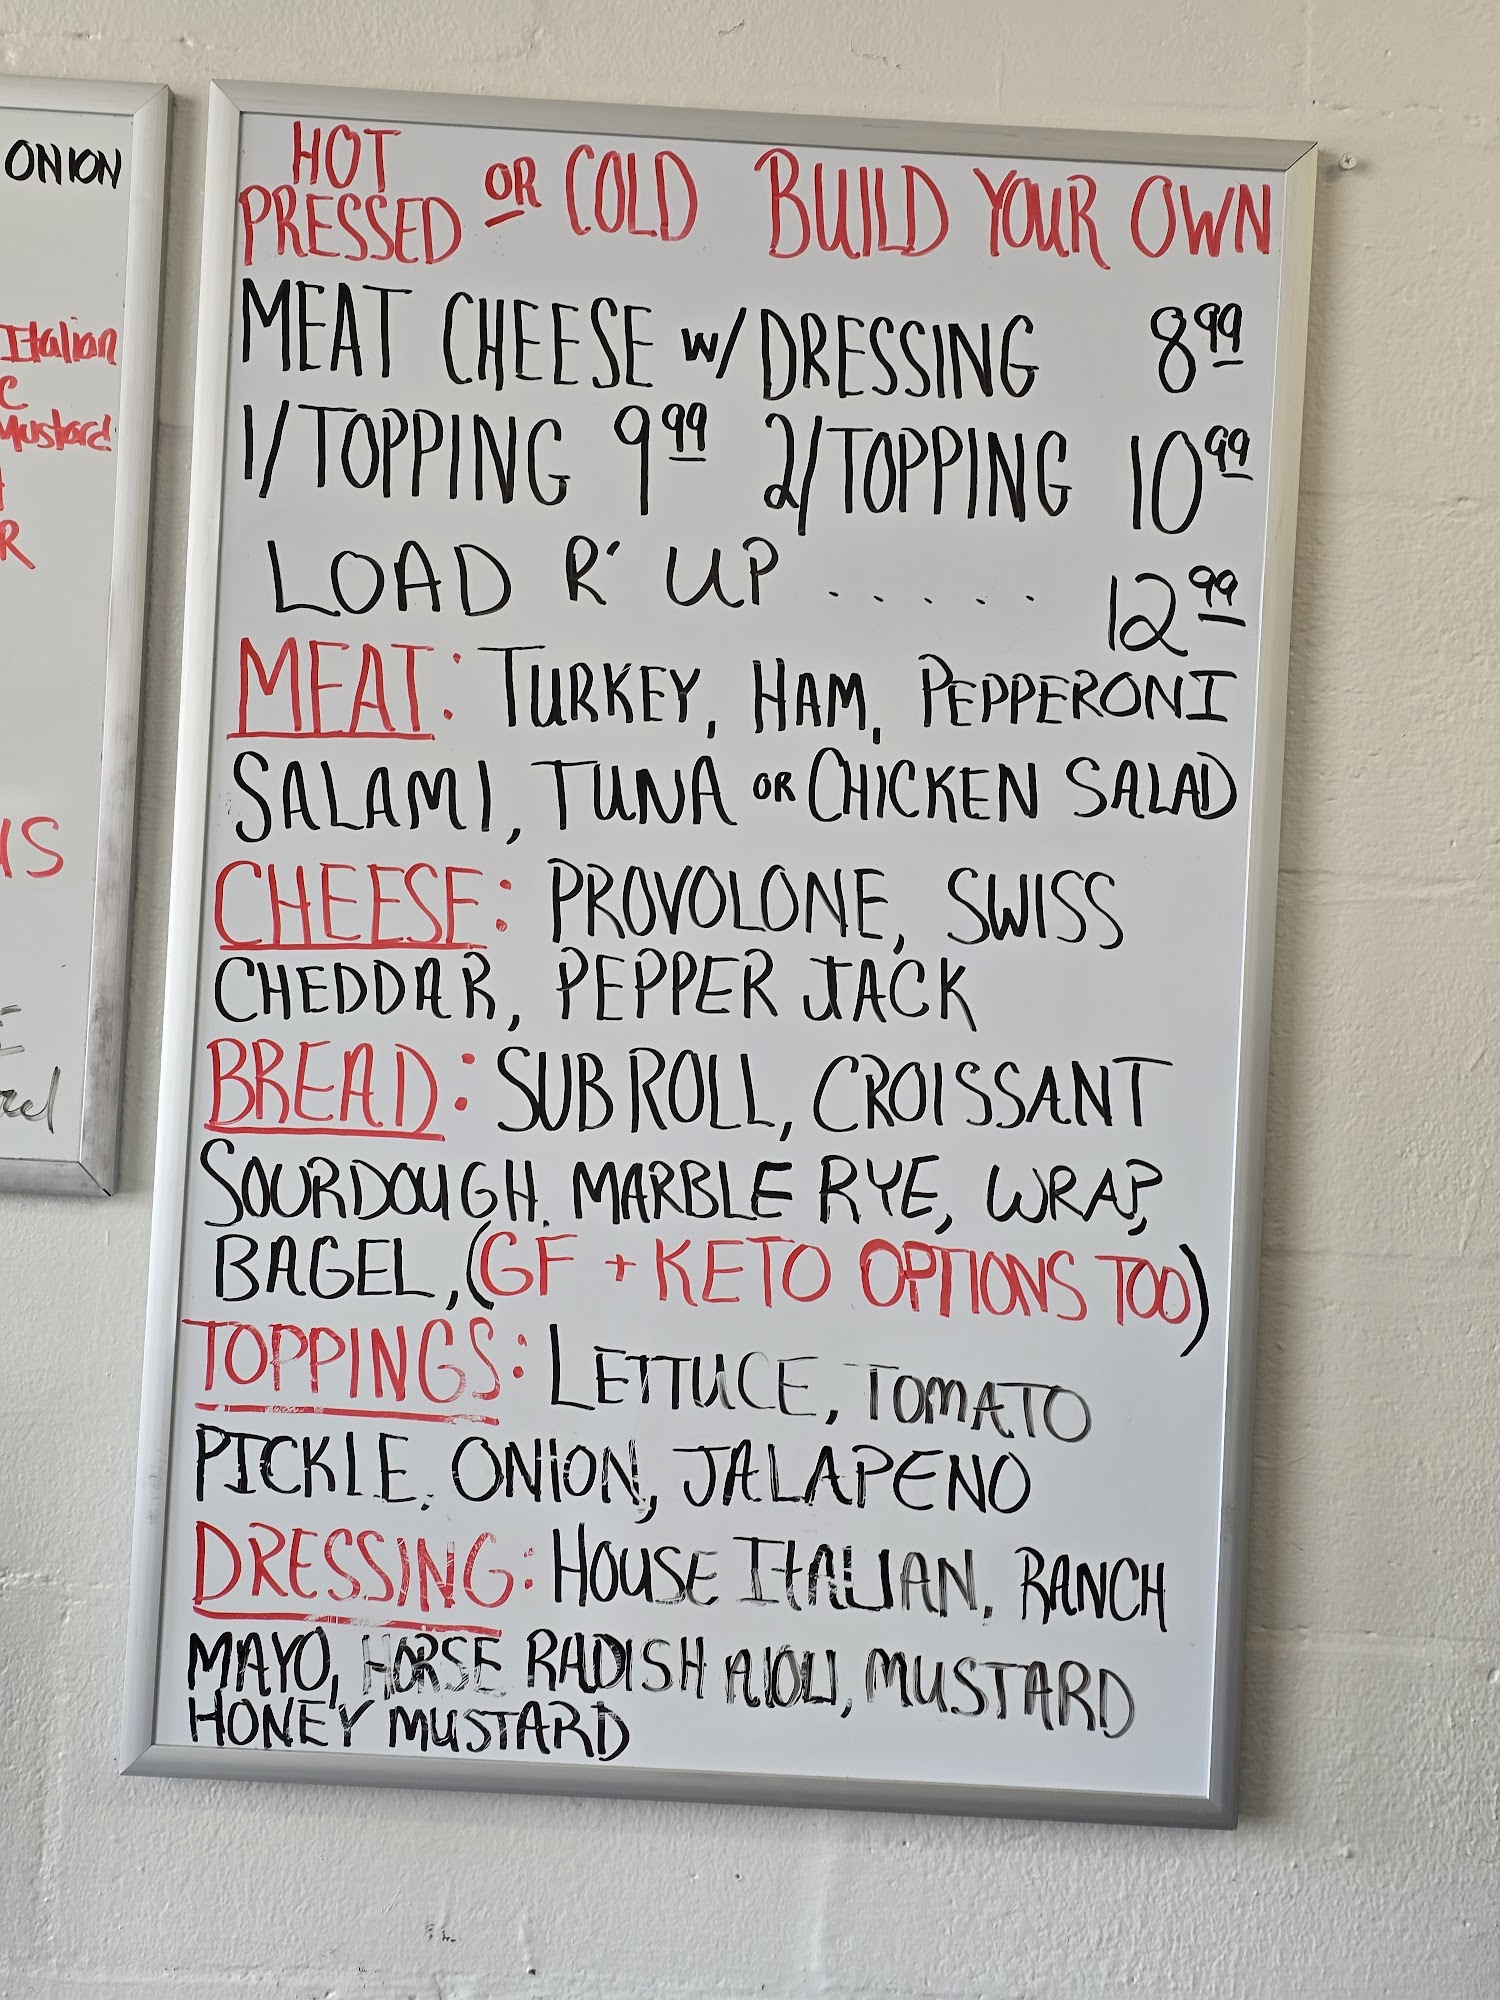 ONION
Italian
C
Mustard
R
US
HOT PRESSED OR COLD BUILD YOUR OWN
MEAT CHEESE w/ DRESSING 8.99
1/TOPPING 9.99 2/TOPPING 10.99
LOAD R' UP ..... 12.99
MEAT: TURKEY, HAM, PEPPERONI
SALAMI, TUNA OR CHICKEN SALAD
CHEESE: PROVOLONE, SWISS
CHEDDAR, PEPPER JACK
BREAD: SUB ROLL, CROISSANT
SOURDOUGH, MARBLE RYE, WRAP,
BAGEL, (GF + KETO OPTIONS TOO)
TOPPINGS: LETTUCE, TOMATO
PICKLE, ONION, JALAPENO
DRESSING: HOUSE ITALIAN, RANCH
MAYO, HORSE RADISH AIOLI, MUSTARD
HONEY MUSTARD